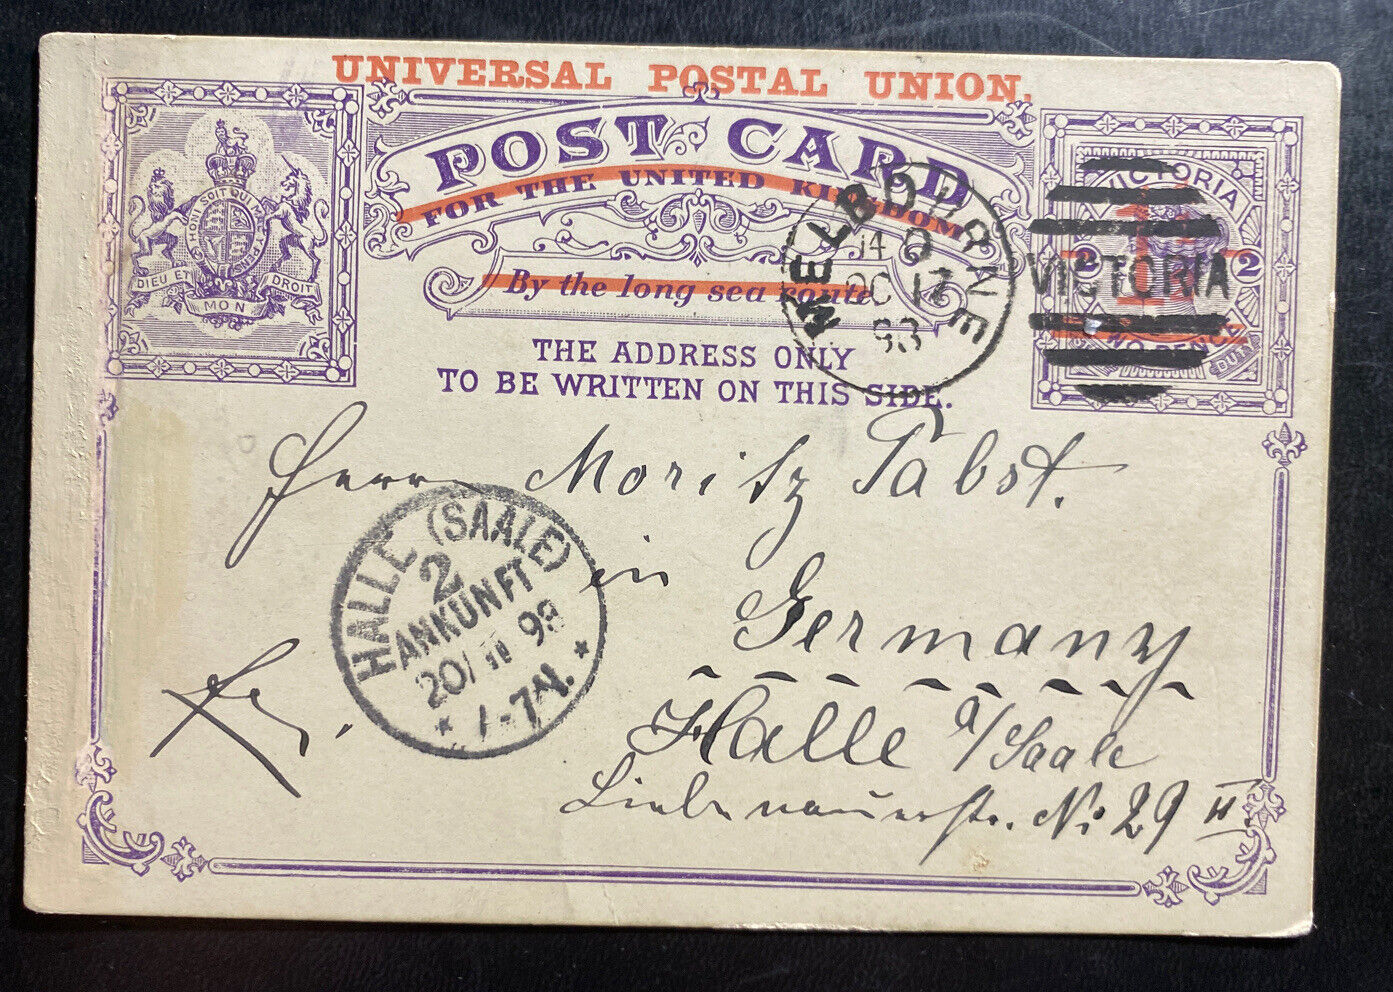 UNIVERSAL POSTAL UNION.
POST CARD
FOR THE UNITED KINGDOM
By the long sea route
THE ADDRESS ONLY
TO BE WRITTEN ON THIS SIDE.
HONI SOIT QUI MAL Y PENSE
DIEU ET MON DROIT
MELBOURNE
OC 17
93
VICTORIA
VICTORIA
2 2
TWO PENCE
Herrn Moritz Pabst.
in
Germany
Halle a/Saale
Liebenauerstr. No 29 II.
HALLE (SAALE)
2
ANKUNFT
20/11 93
* 6-7N. *